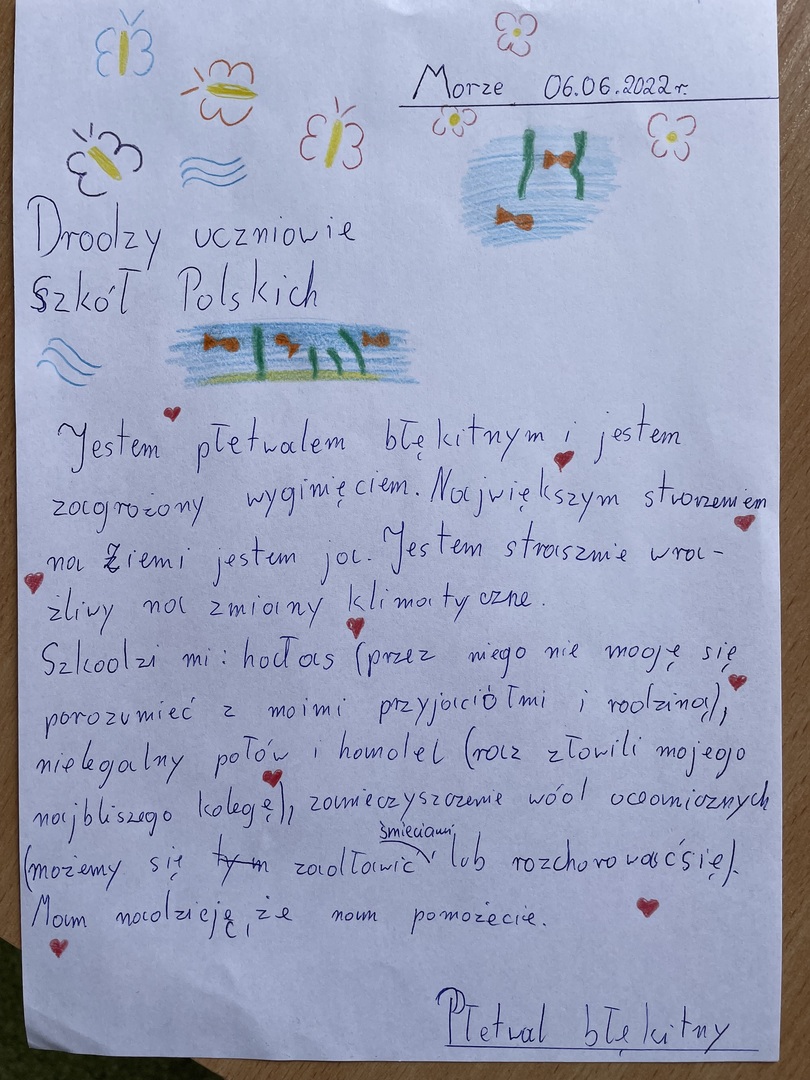 Morze 06.06.2022r.
Drodzy uczniowie
Szkół Polskich
Jestem płetwalem błękitnym i jestem
zagrożony wyginięciem. Największym stworzeniem
na Ziemi jestem ja. Jestem strasznie wra-
żliwy na zmiany klimatyczne.
Szkodzi mi: hałas (przez niego nie mogę się
porozumieć z moimi przyjaciółmi i rodziną),
nielegalny połów i handel (raz złowili mojego
najbliszego kolegę), zanieczyszczenie wód oceanicznych
śmieciami
(możemy się tym zadławić lub rozchorować się).
Mam nadzieję, że nam pomożecie.
Płetwal błękitny